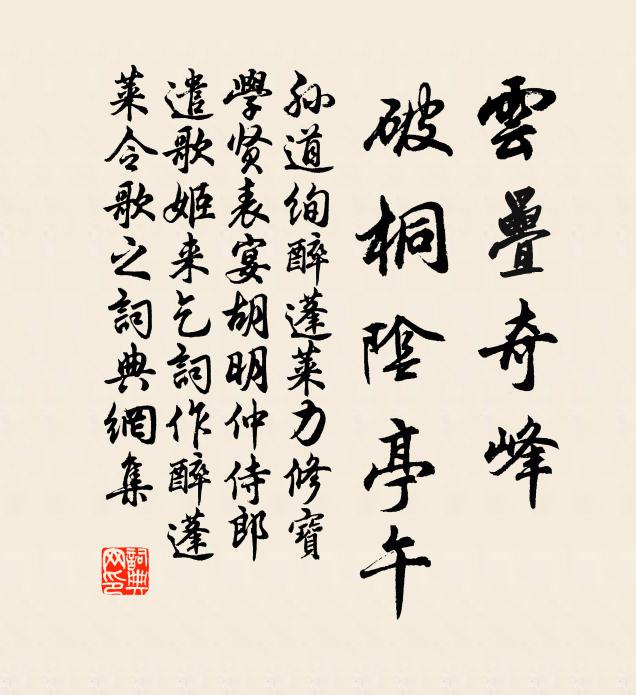 雲疊奇峰
破桐陰亭午
孙道绚醉蓬莱力修寶
學贤表宴胡明仲侍郎
遣歌姬来乞詞作醉蓬
莱令歌之詞典網集
詞典
网印